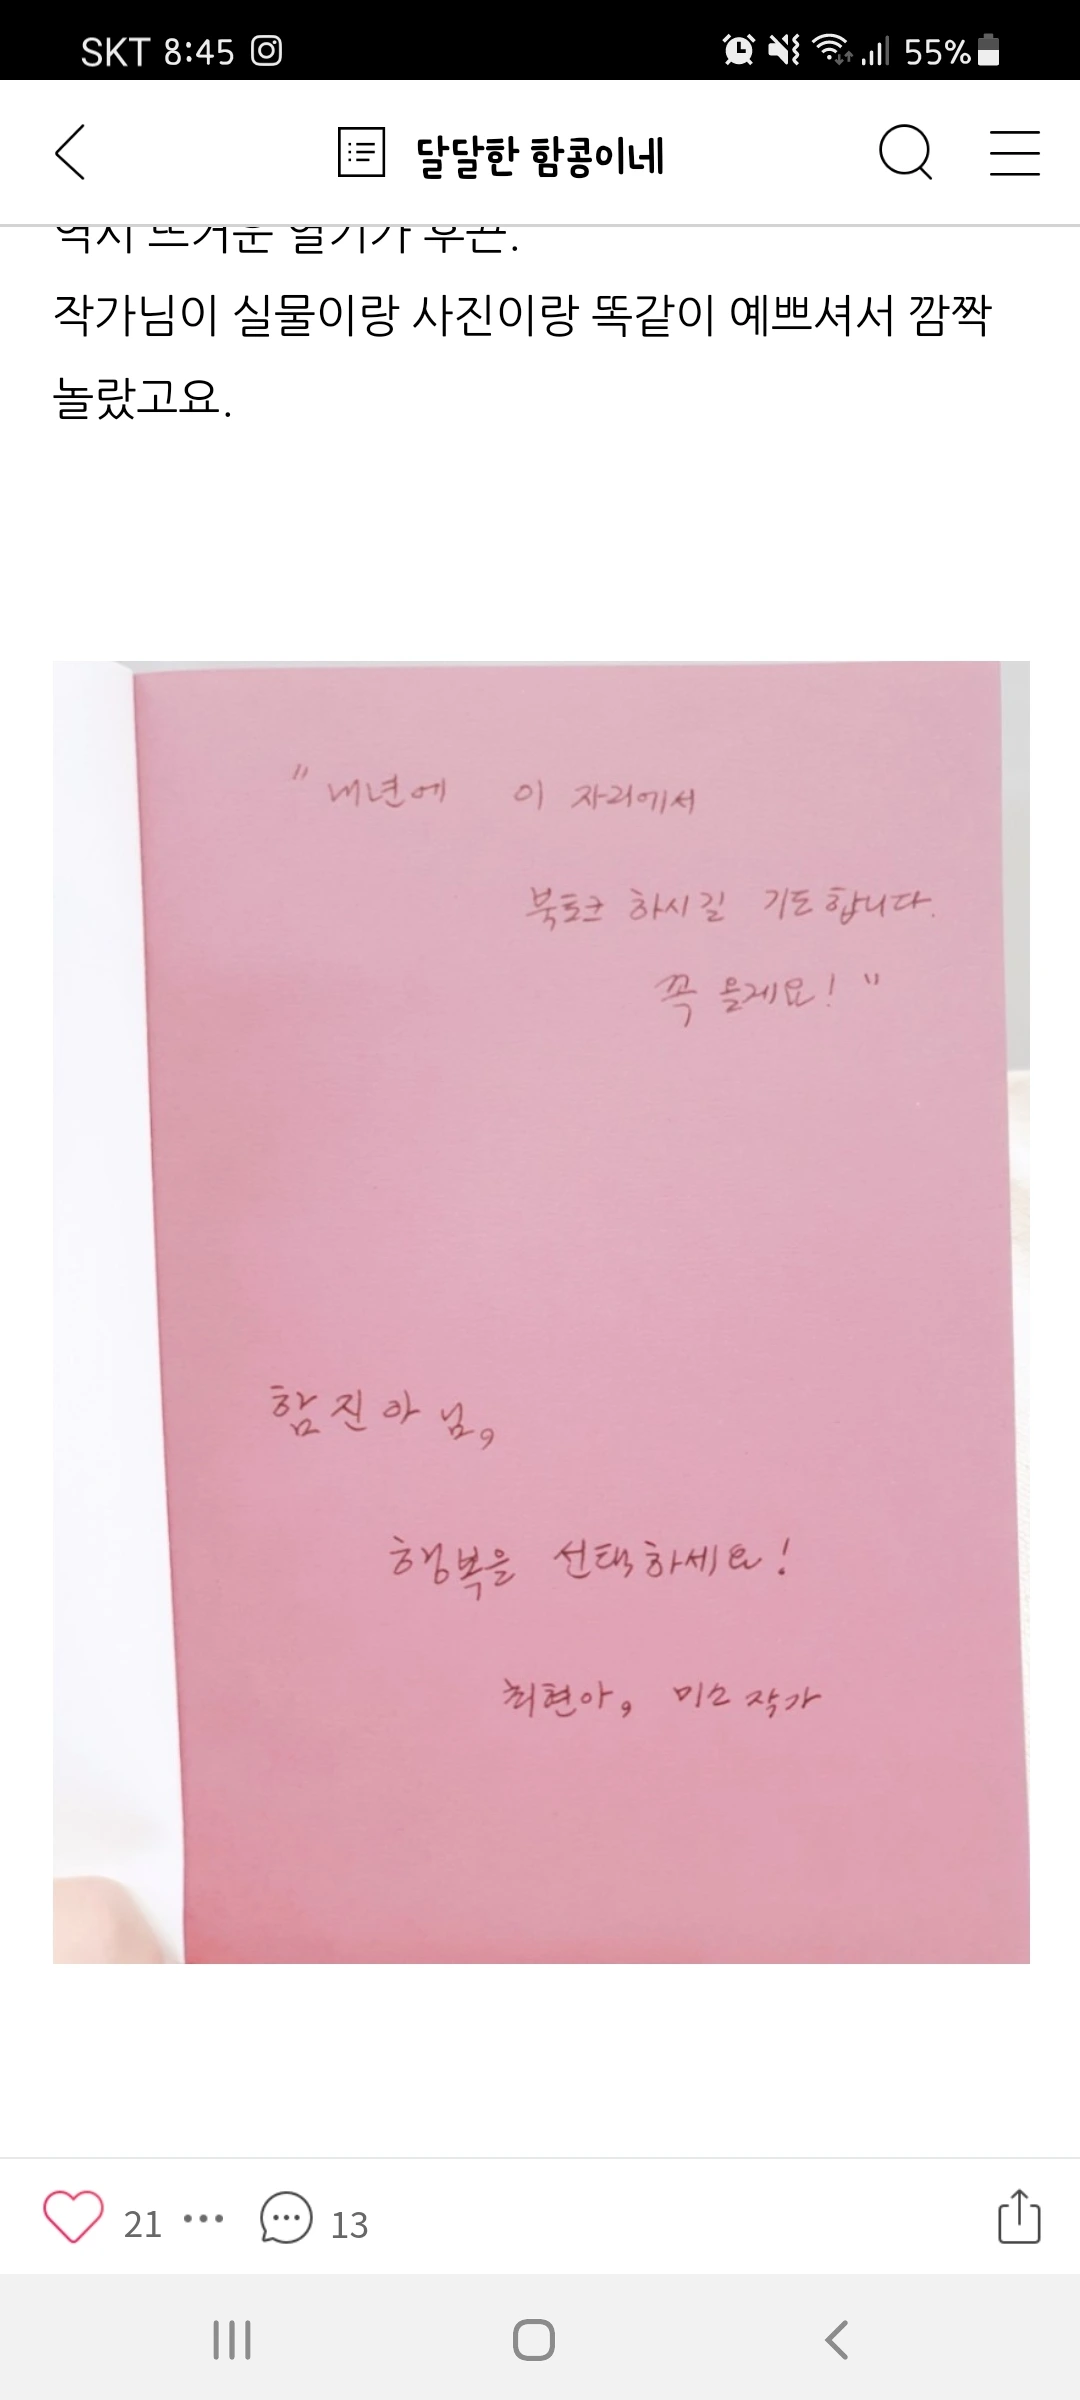 SKT 8:45
55%
달달한 함콩이네
역시 뜨거운 열기가 후끈.
작가님이 실물이랑 사진이랑 똑같이 예쁘셔서 깜짝
놀랐고요.
" 내년에 이 자리에서
북토크 하시길 기도합니다.
꼭 올게요! "
함진아님,
행복을 선택하세요!
최현아, 미소 작가
21
13